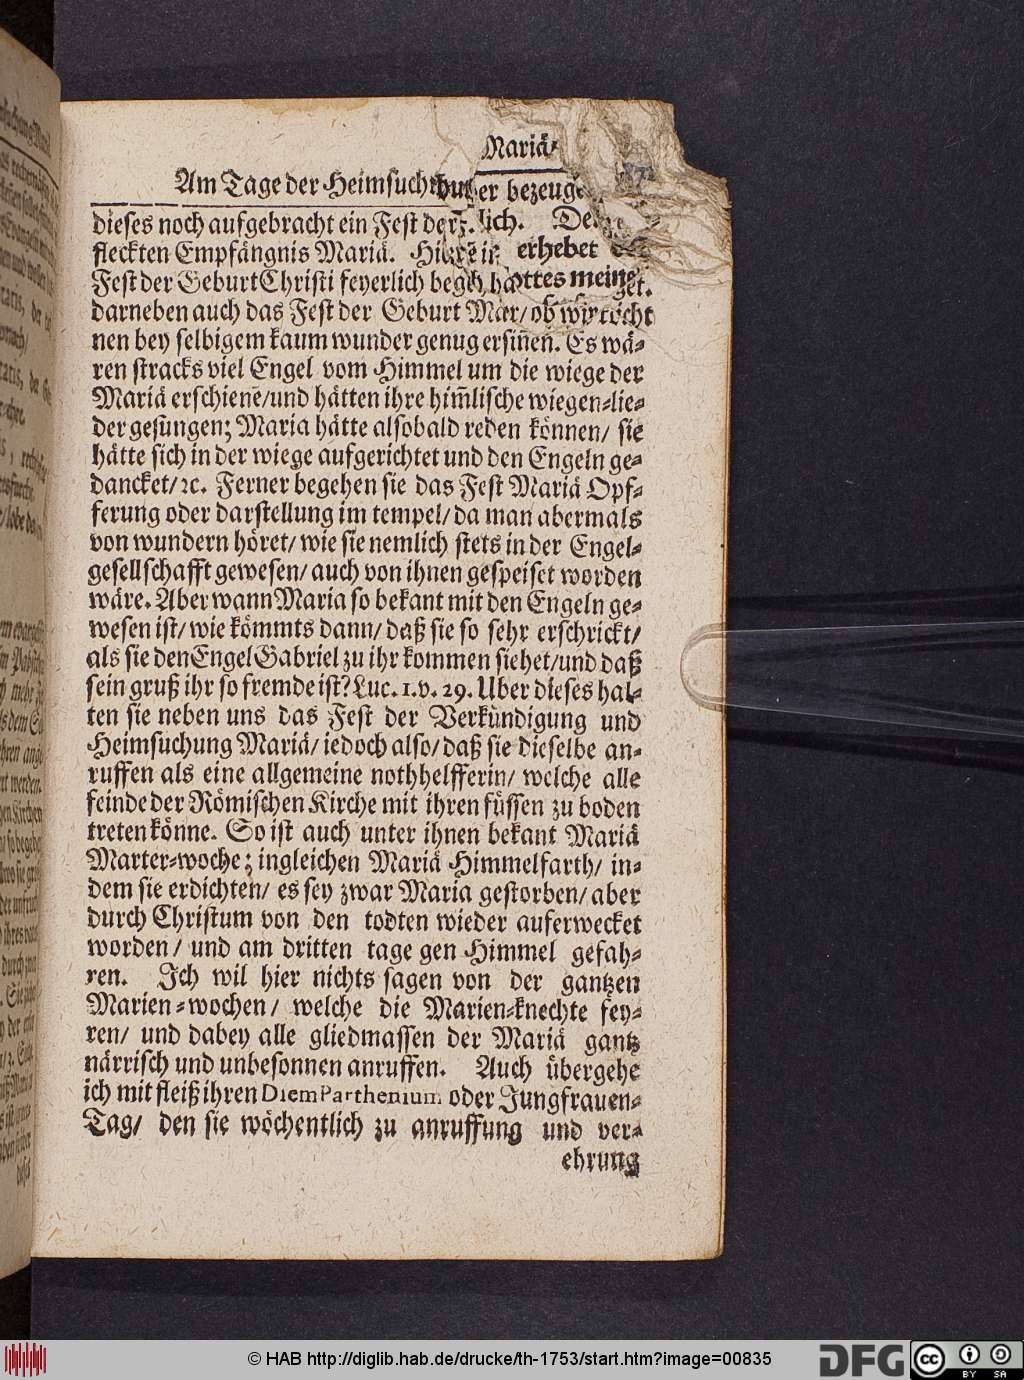 Mariä/
Am Tage der Heimsuch
er bezeuge
dieses noch aufgebracht ein Fest der lich. De
fleckten Empfängnis Mariä. erhebet
Fest der Geburt Christi feyerlich ottes meine
darneben auch das Fest der Geburt Mar/ ob wir
nen bey selbigem kaum wunder genug ersiñen. Es wä-
ren stracks viel Engel vom Himmel um die wiege der
Mariä erschienē/und hätten ihre him̃lische wiegen-lie-
der gesungen; Maria hätte alsobald reden können/ sie
hätte sich in der wiege aufgerichtet und den Engeln ge-
dancket/ ꝛc. Ferner begehen sie das Fest Mariä Opf-
ferung oder darstellung im tempel/ da man abermals
von wundern höret/ wie sie nemlich stets in der Engel-
gesellschafft gewesen/ auch von ihnen gespeiset worden
wäre. Aber wann Maria so bekant mit den Engeln ge-
wesen ist/ wie kömmts dann/ daß sie so sehr erschrickt/
als sie den Engel Gabriel zu ihr kommen siehet/und daß
sein gruß ihr so fremde ist? Luc. 1. v. 29. Uber dieses hal-
ten sie neben uns das Fest der Verkündigung und
Heimsuchung Mariä/ iedoch also/ daß sie dieselbe an-
ruffen als eine allgemeine nothhelfferin/ welche alle
feinde der Römischen Kirche mit ihren füssen zu boden
treten könne. So ist auch unter ihnen bekant Mariä
Marter-woche; ingleichen Mariä Himmelfarth/ in-
dem sie erdichten/ es sey zwar Maria gestorben/ aber
durch Christum von den todten wieder auferwecket
worden/ und am dritten tage gen Himmel gefah-
ren. Ich wil hier nichts sagen von der gantzen
Marien-wochen/ welche die Marien-knechte fey-
ren/ und dabey alle gliedmassen der Mariä gantz
närrisch und unbesonnen anruffen. Auch übergehe
ich mit fleiß ihren Diem Parthenium oder Jungfrauen-
Tag/ den sie wöchentlich zu anruffung und ver-
ehrung
© HAB http://diglib.hab.de/drucke/th-1753/start.htm?image=00835
DFG
cc BY SA